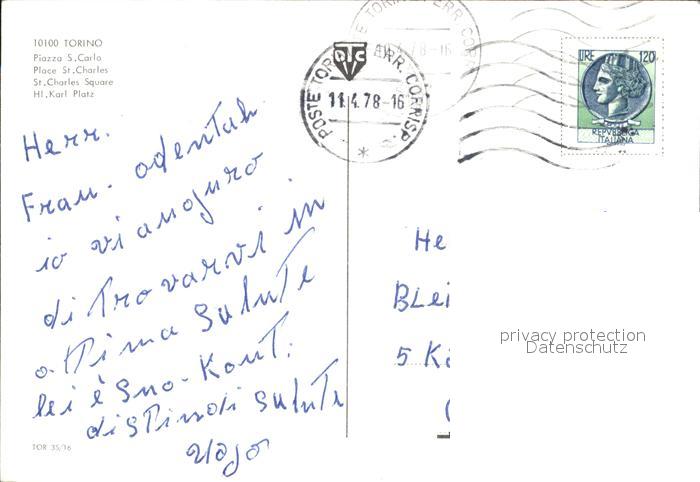 10100 TORINO
Piazza S. Carlo
Place St. Charles
St. Charles Square
Hl. Karl Platz
POSTE TORINO FERR. CORRISP.
11.4.78-16
LIRE 120
REPVBBLICA
ITALIANA
Herr.
Frau. odentah
io vi anguro
di Trovarvi in
oTTima SaluTe
lei è Suo. KonT.
disTindi SaluTe
He
BLei
5 Kö
privacy protection
Datenschutz
TOR 35/16